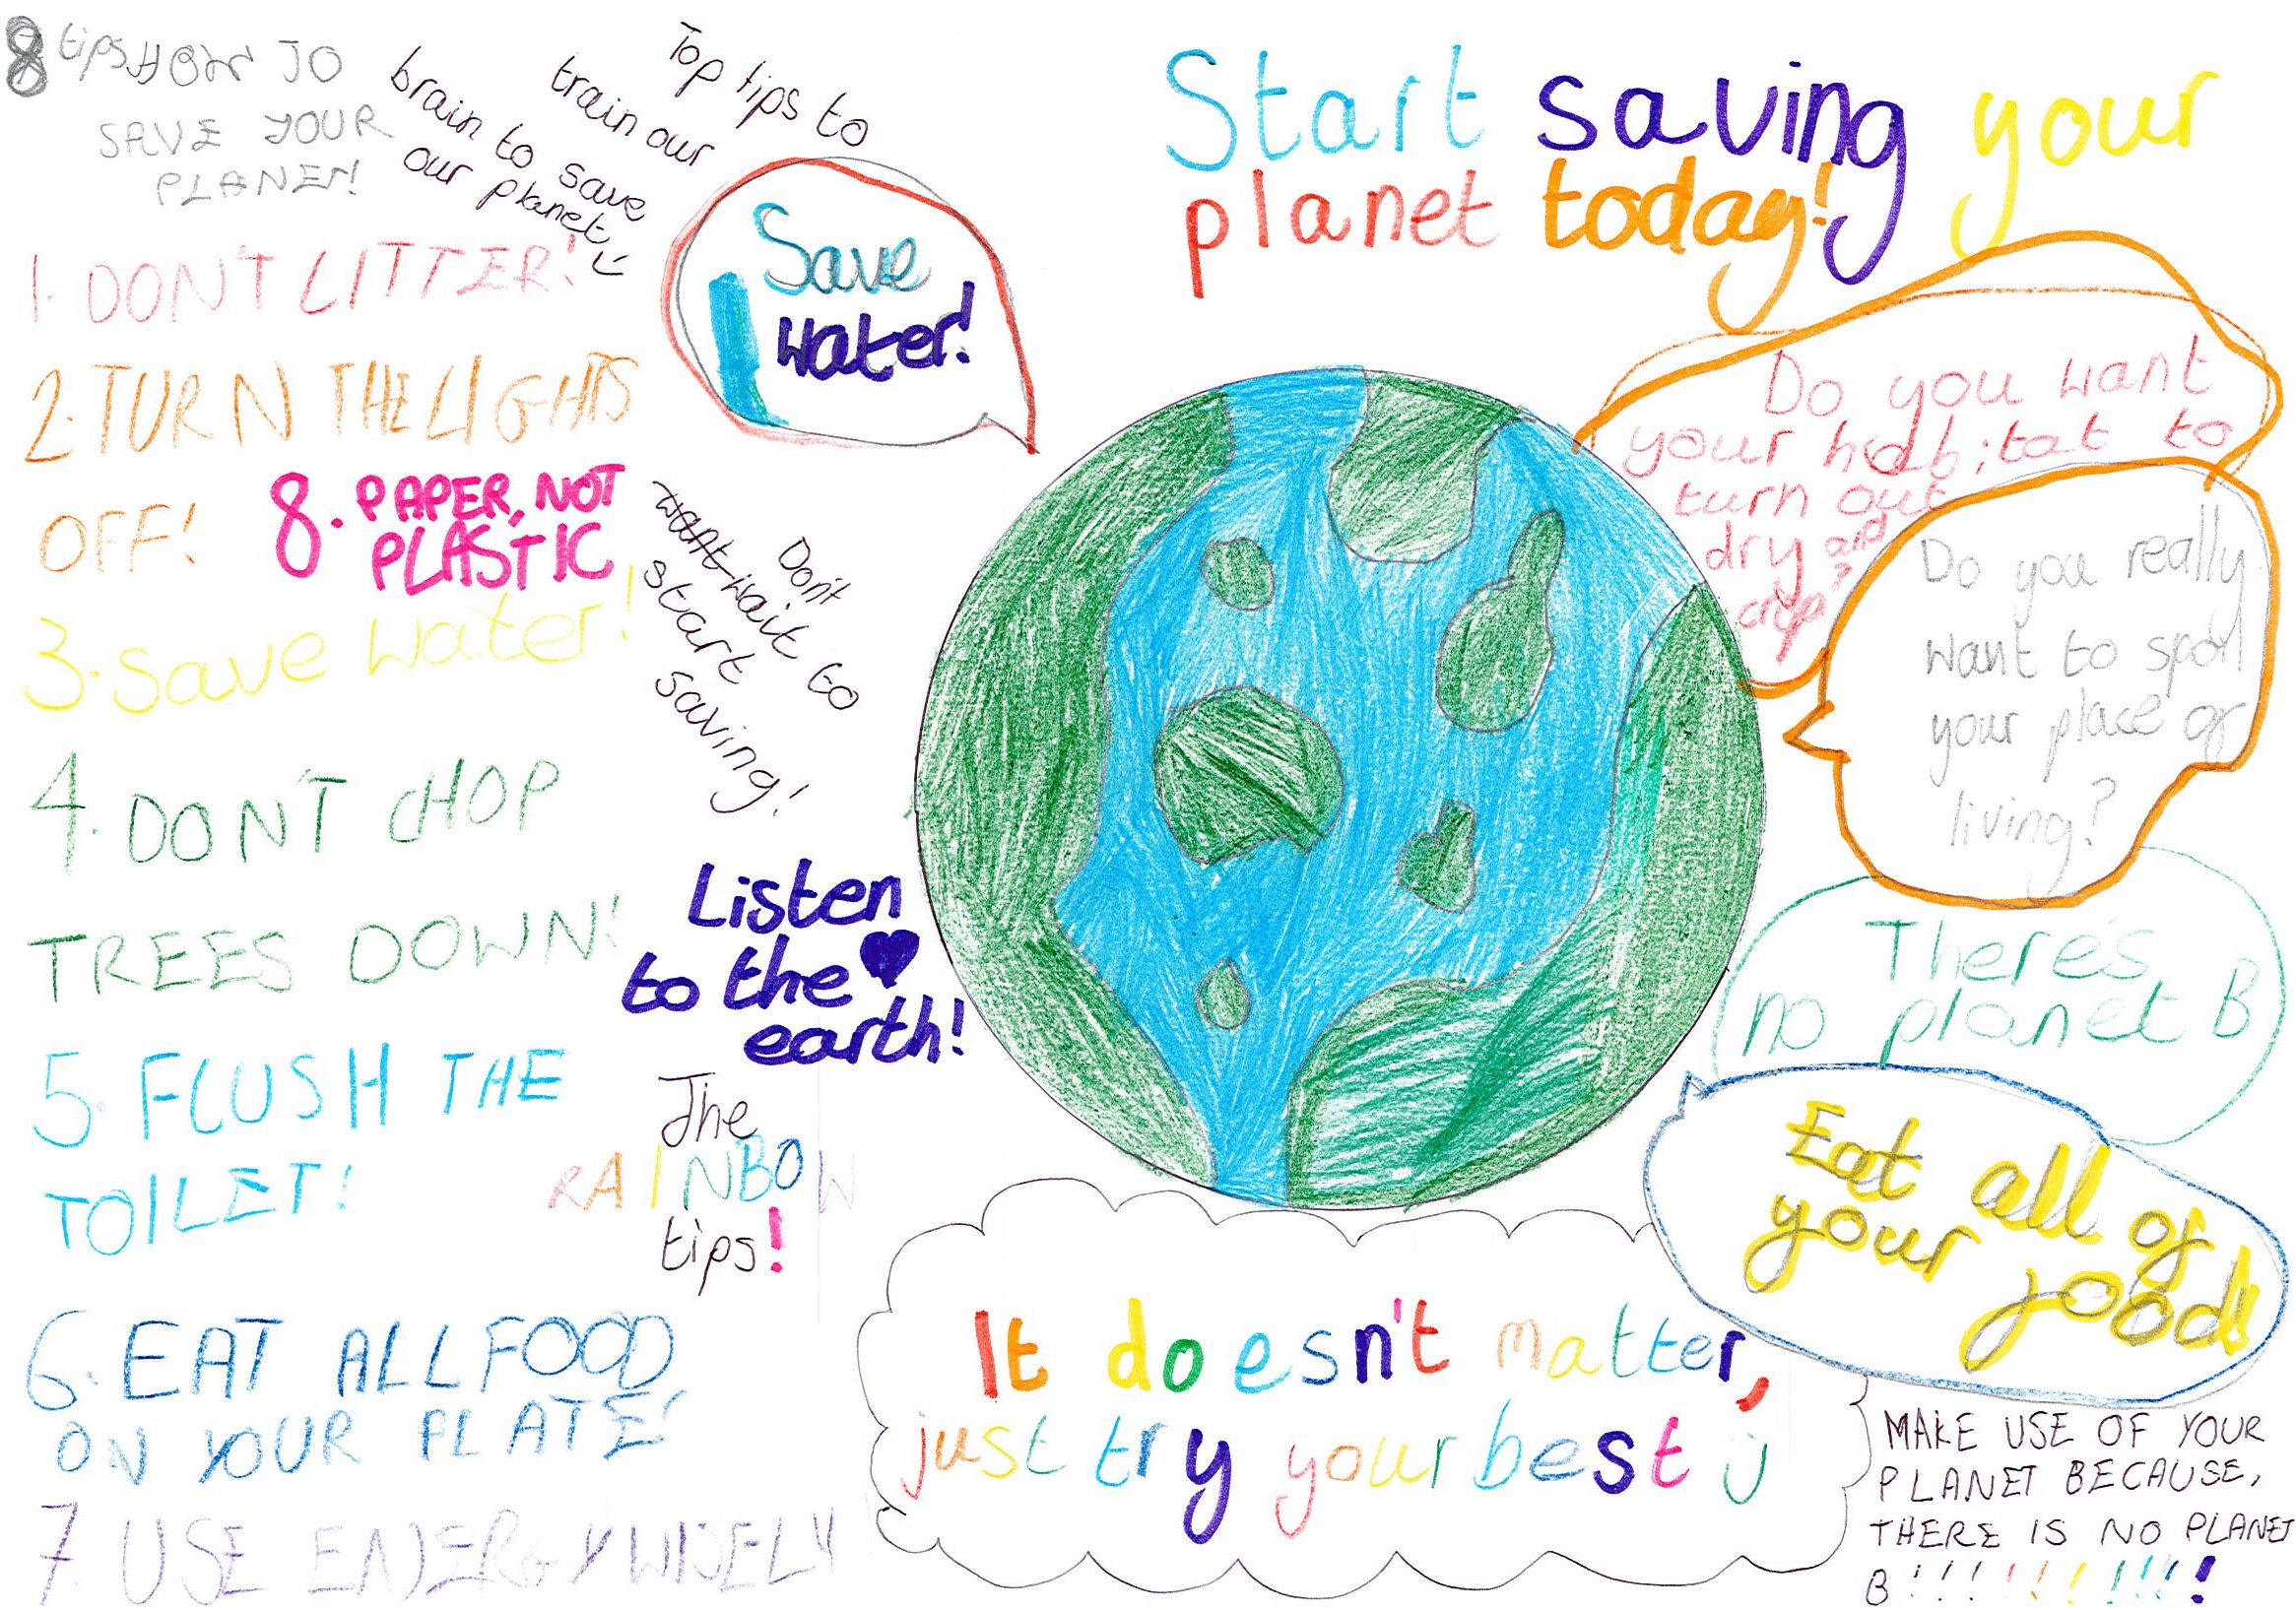 8 tips HOW TO
SAVE YOUR
PLANET!
Top tips to
train our
brain to save
our planet
Start saving your
planet today!
1. DON'T LITTER!
2. TURN THE LIGHTS
OFF!
8. PAPER, NOT
PLASTIC
3. Save Water!
4. DON'T CHOP
TREES DOWN!
5. FLUSH THE
TOILET!
6. EAT ALL FOOD
ON YOUR PLATE!
7. USE ENERGY WISELY
Save
water!
Don't
want wait to
start
saving!
Listen
to the
earth!
The
RAINBOW
tips!
Do you want
your habitat to
turn out
dry and
crisp?
Do you really
want to spoil
your place of
living?
There's
no planet B
Eat all of
your food!
It doesn't matter,
just try your best :)
MAKE USE OF YOUR
PLANET BECAUSE,
THERE IS NO PLANET
B!!!!!!!!!!